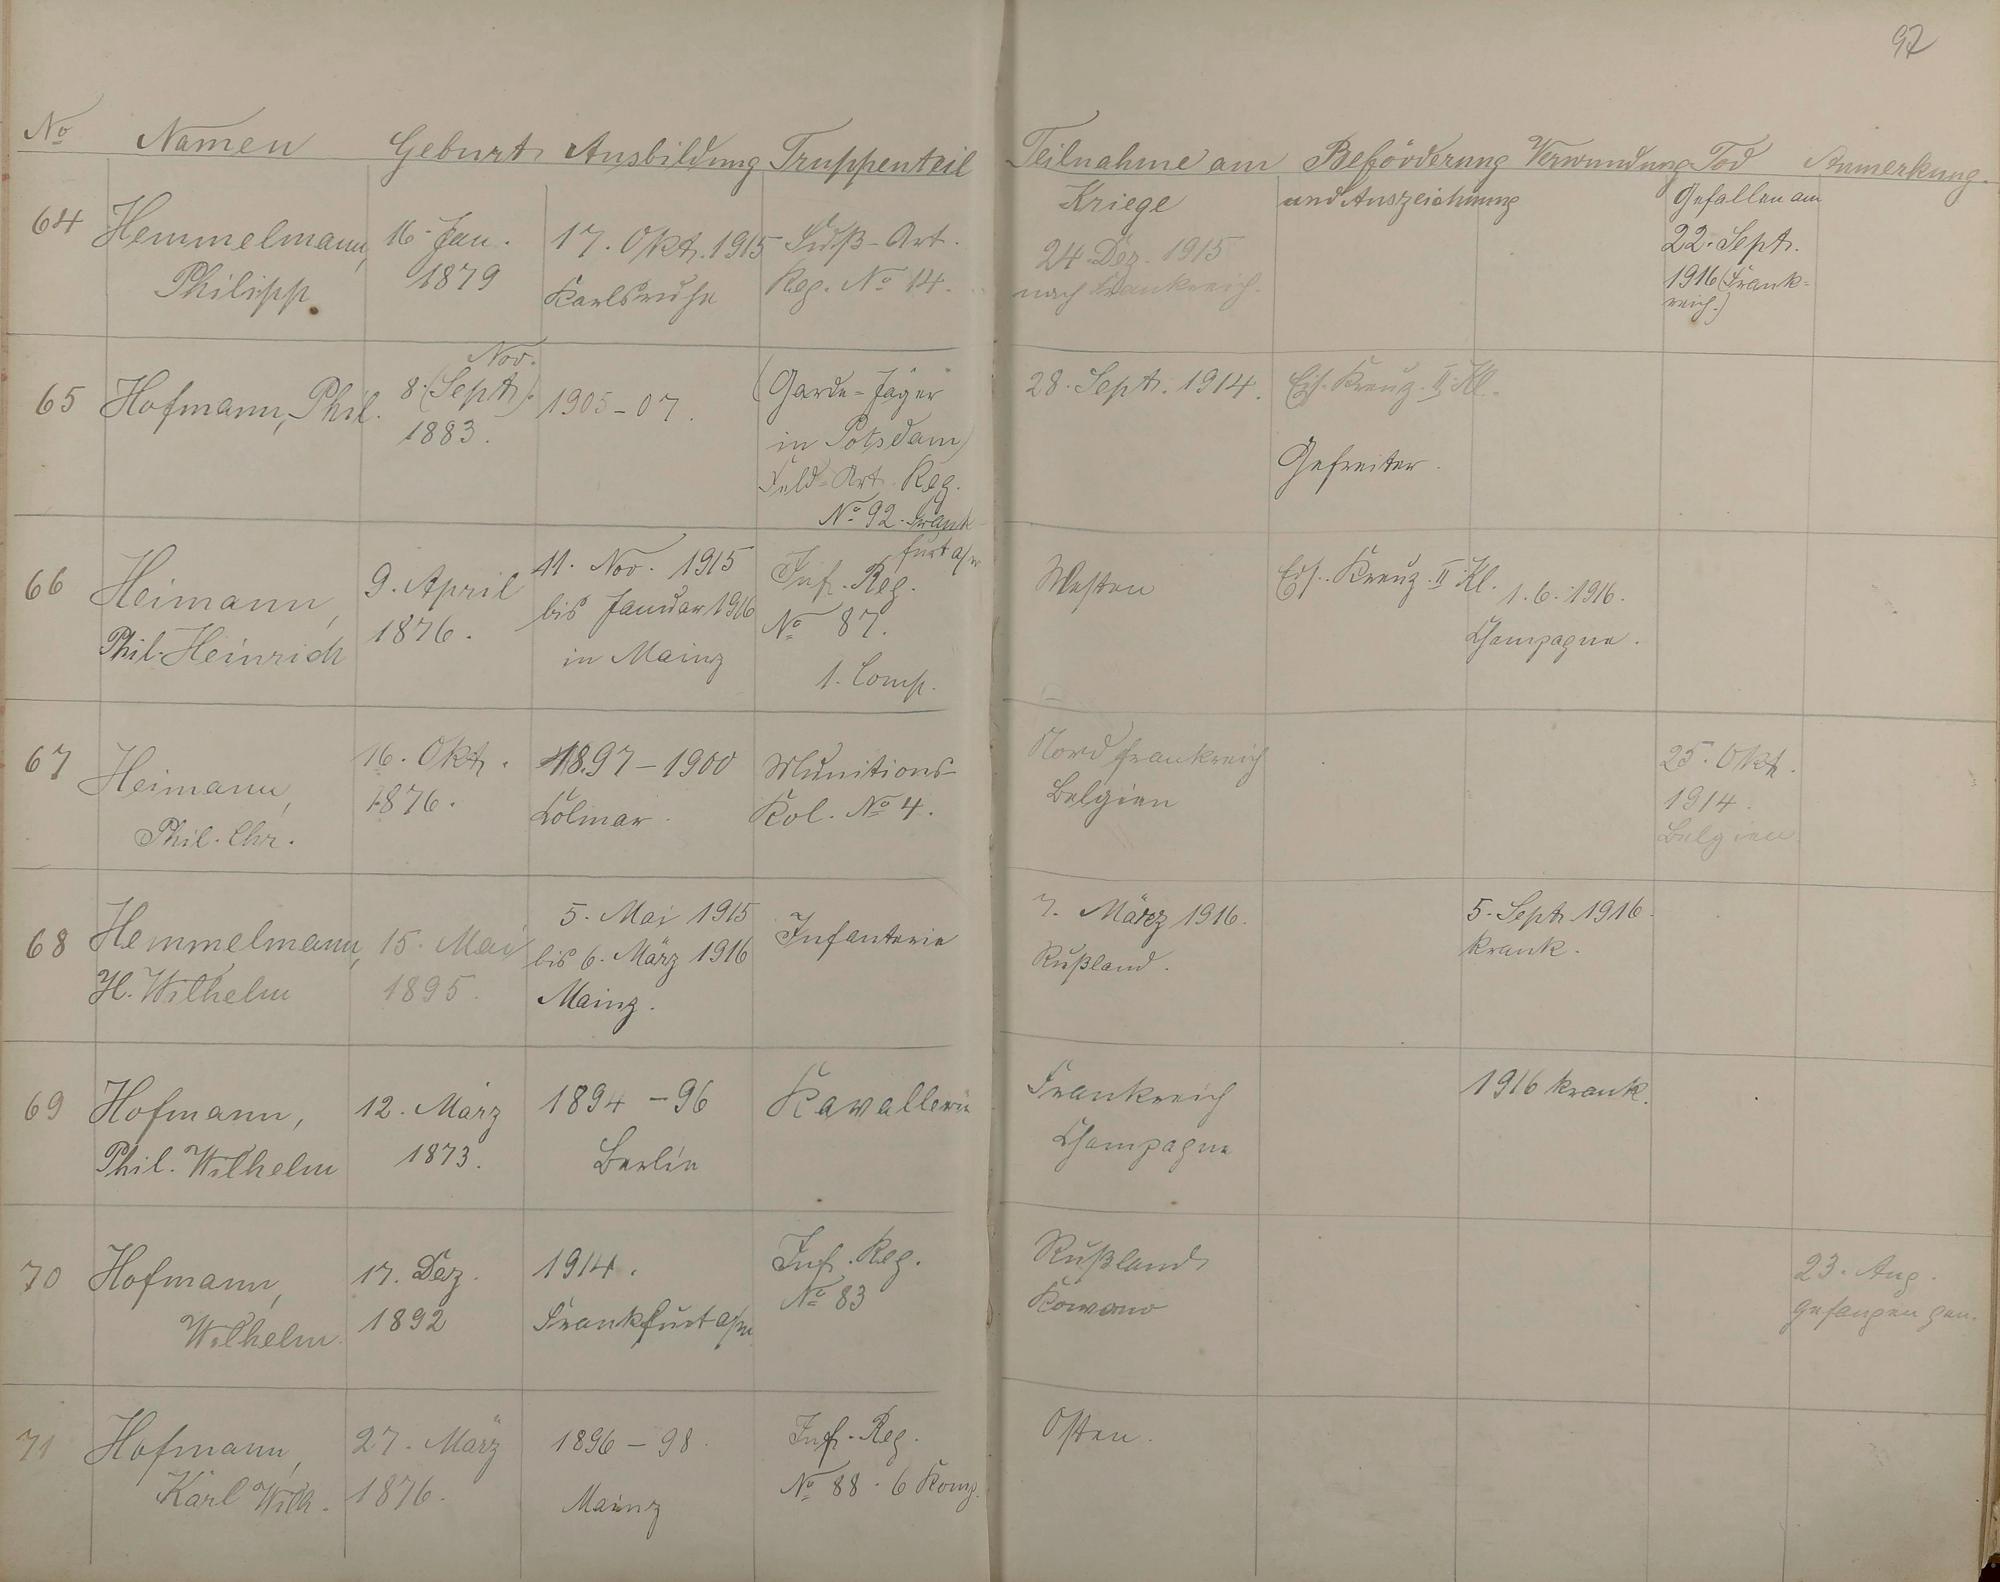 97
No Namen Geburt Ausbildung Truppenteil Teilnahme am Kriege Beförderung und Auszeichnung Verwundung Tod Anmerkung.
64 Hemmelmann,
Philipp
16. Jan.
1879
17. Okt. 1915
Karlsruhe
Fuß-Art.
Reg. No 14.
24 Dez. 1915
nach Frankreich.
Gefallen am
22. Sept.
1916 (Frank-
reich.)
65 Hofmann, Phil.
Nov.
8. (Sept.).
1883.
1905-07.
(Garde-Jäger
in Potsdam)
Feld-Art. Reg.
No 92. Frank-
furt a/m
28. Sept. 1914.
Eis. Kreuz. II. Kl.
Gefreiter.
66 Heimann,
Phil. Heinrich
9. April
1876.
11. Nov. 1915
bis Januar 1916
in Mainz
Inf. Reg.
No 87.
1. Comp.
Westen
Eis. Kreuz. II Kl.
1. 6. 1916.
Champagne.
67 Heimann,
Phil. Chr.
16. Okt.
1876.
1897-1900
Colmar.
Munitions-
Kol. No 4.
Nordfrankreich
Belgien
25. Okt.
1914.
Belgien
68 Hemmelmann,
H. Wilhelm
15. Mai
1895.
5. Mai 1915
bis 6. März 1916
Mainz.
Infanterie
7. März 1916.
Rußland.
5. Sept. 1916.
krank.
69 Hofmann,
Phil. Wilhelm
12. März
1873.
1894-96
Berlin
Kavallerie
Frankreich
Champagne
1916 krank.
70 Hofmann,
Wilhelm.
17. Dez.
1892
1914.
Frankfurt a/m
Inf. Reg.
No 83
Rußland
Kowono
23. Aug.
gefangen gen.
71 Hofmann,
Karl Wilh.
27. März
1876.
1896-98.
Mainz
Inf. Reg.
No 88. 6 Komp.
Osten.